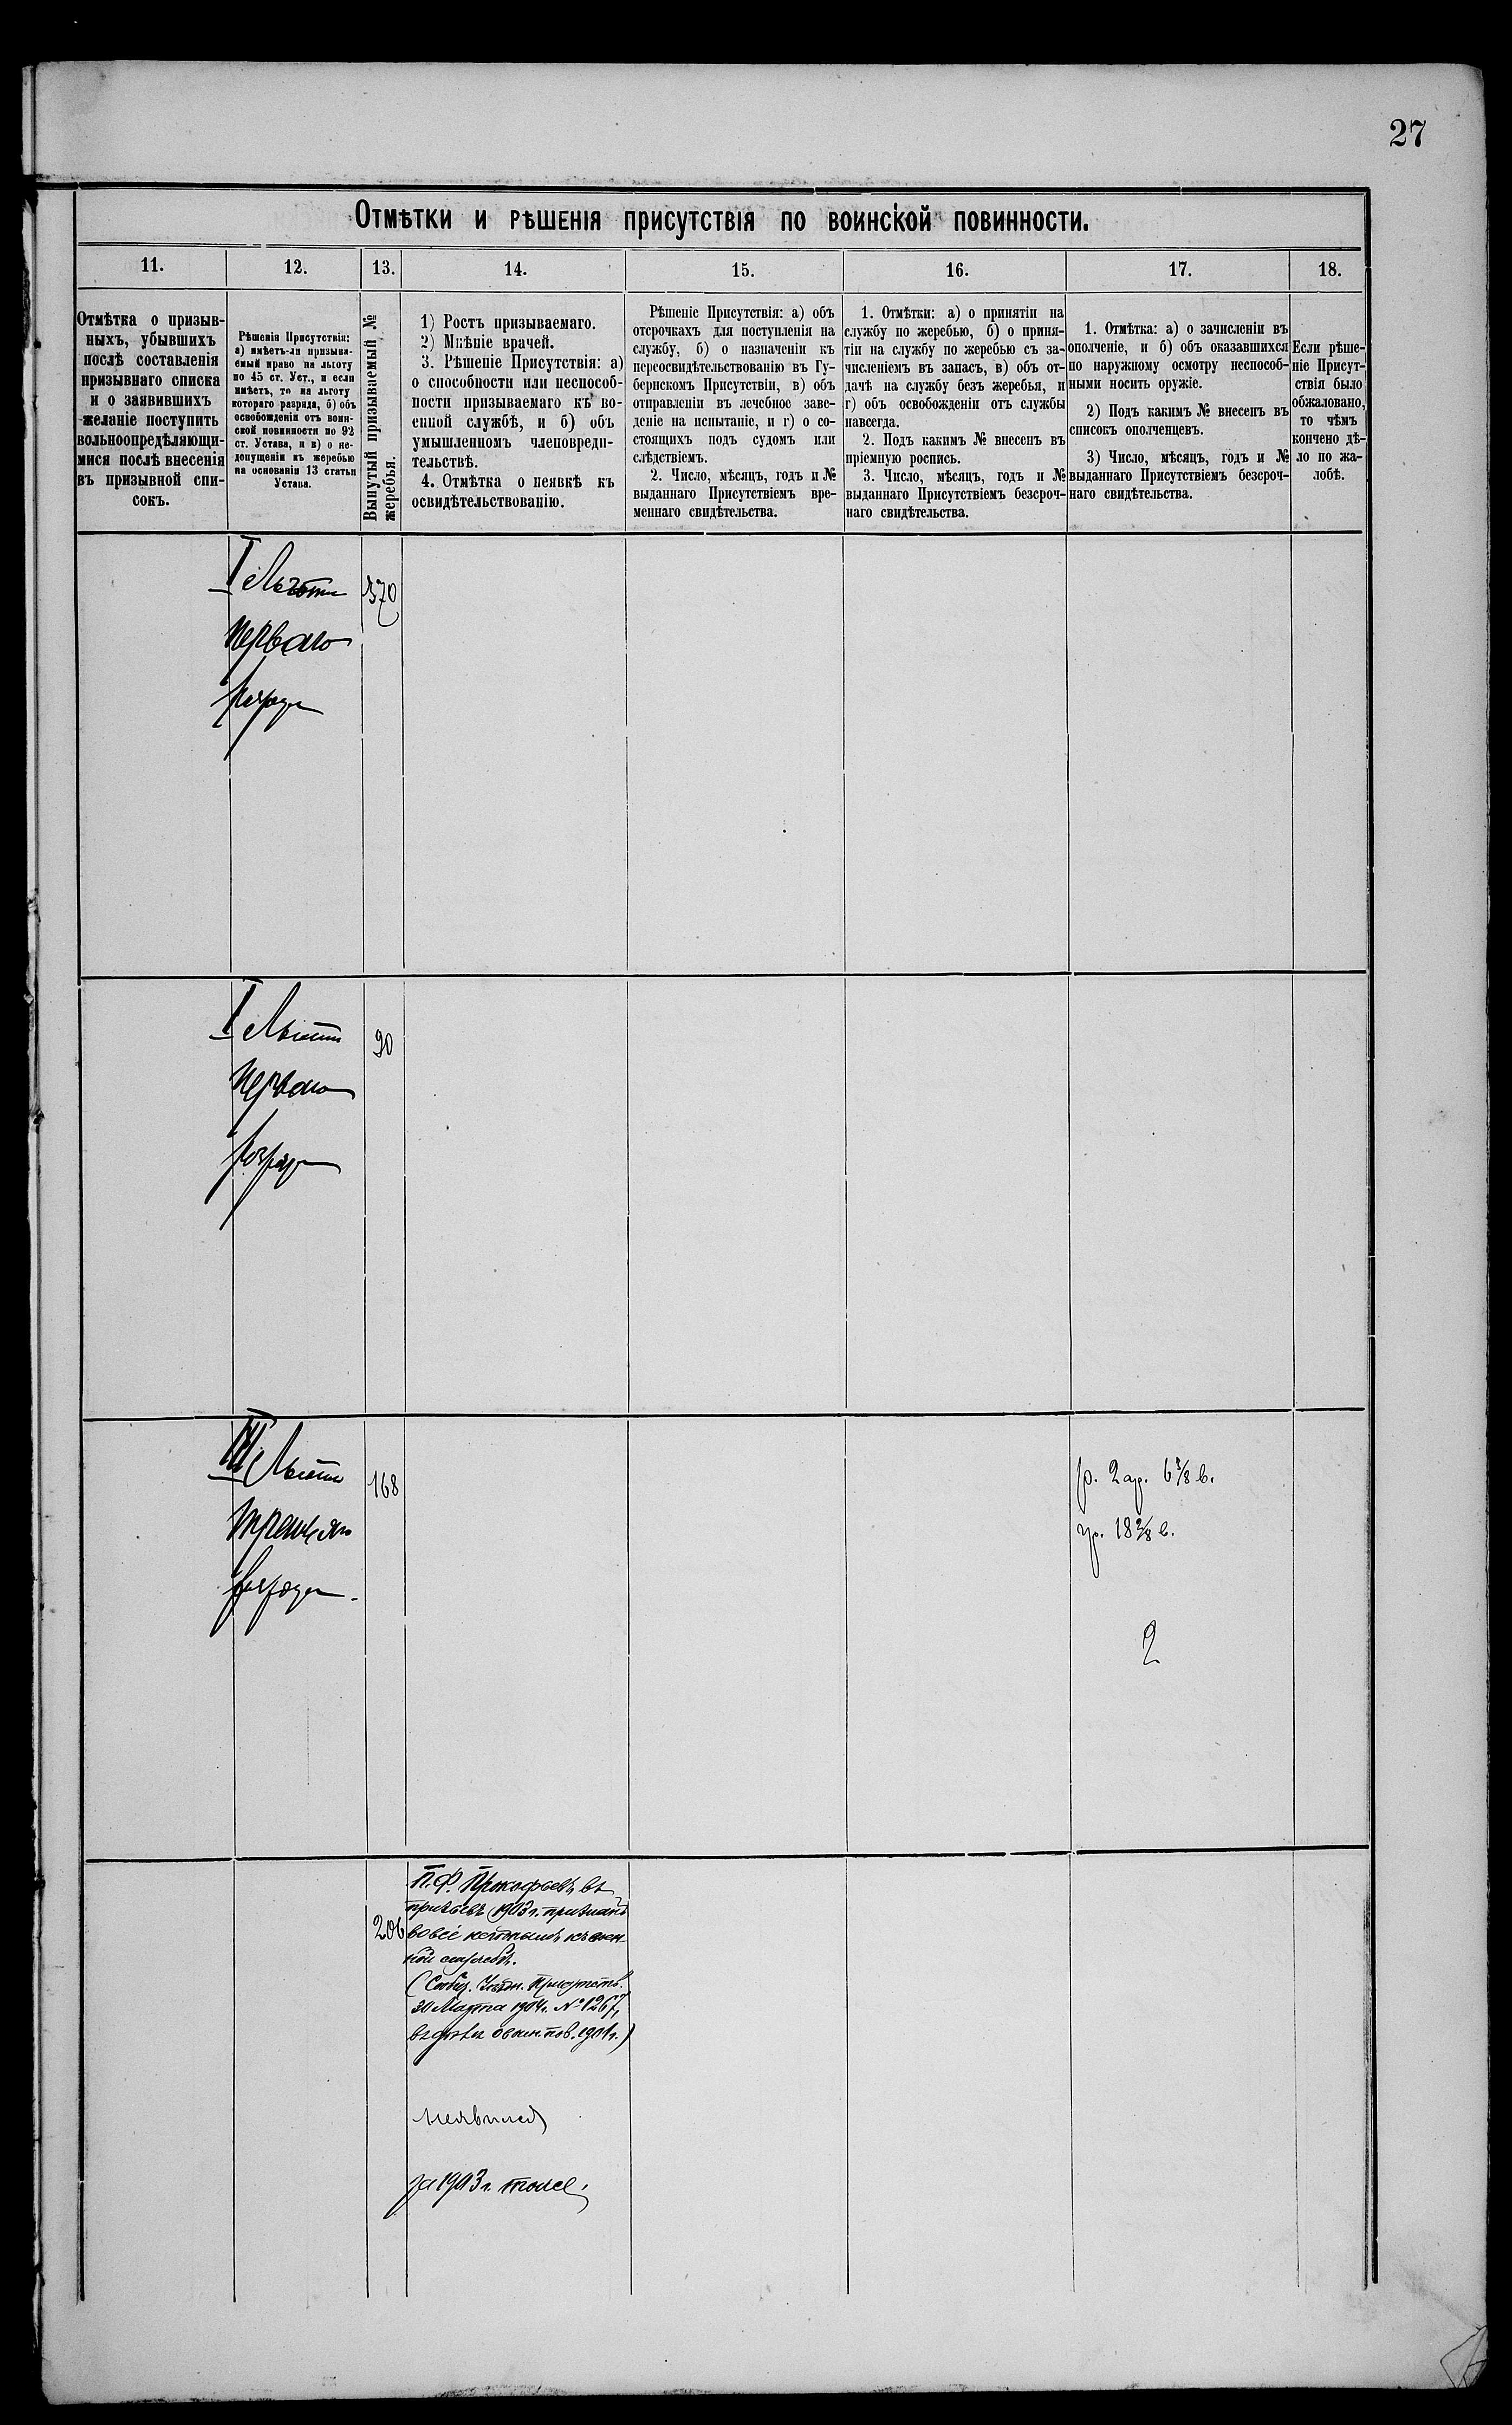 27
Отмѣтки и рѣшенія присутствія по воинской повинности.
11.
12.
13.
14.
15.
16.
17.
18.
Отмѣтка о призыв-
ныхъ, убывшихъ
послѣ составленія
призывнаго списка
и о заявившихъ
желаніе поступить
вольноопредѣляющи-
мися послѣ внесенія
въ призывной спи-
сокъ.
Рѣшенія Присутствія:
а) имѣетъ-ли призыва-
емый право на льготу
по 45 ст. Уст., и если
имѣетъ, то на льготу
котораго разряда, б) объ
освобожденіи отъ воин-
ской повинности по 92
ст. Устава, и в) о не-
допущеніи къ жеребью
на основаніи 13 статьи
Устава.
Вынутый призываемый №
жеребья.
1) Ростъ призываемаго.
2) Мнѣніе врачей.
3. Рѣшеніе Присутствія: а)
о способности или неспособ-
ности призываемаго къ во-
енной службѣ, и б) объ
умышленномъ членовреди-
тельствѣ.
4. Отмѣтка о неявкѣ къ
освидѣтельствованію.
Рѣшеніе Присутствія: а) объ
отсрочкахъ для поступленія на
службу, б) о назначеніи къ
переосвидѣтельствованію въ Гу-
бернскомъ Присутствіи, в) объ
отправленіи въ лечебное заве-
деніе на испытаніе, и г) о со-
стоящихъ подъ судомъ или
слѣдствіемъ.
2. Число, мѣсяцъ, годъ и №
выданнаго Присутствіемъ вре-
меннаго свидѣтельства.
1. Отмѣтки: а) о принятіи на
службу по жеребью, б) о приня-
тіи на службу по жеребью съ за-
численіемъ въ запасъ, в) объ от-
дачѣ на службу безъ жеребья, и
г) объ освобожденіи отъ службы
навсегда.
2. Подъ какимъ № внесенъ въ
пріемную роспись.
3. Число, мѣсяцъ, годъ и №
выданнаго Присутствіемъ безсроч-
наго свидѣтельства.
1. Отмѣтка: а) о зачисленіи въ
ополченіе, и б) объ оказавшихся
по наружному осмотру неспособ-
ными носить оружіе.
2) Подъ какимъ № внесенъ въ
списокъ ополченцевъ.
3) Число, мѣсяцъ, годъ и №
выданнаго Присутствіемъ безсроч-
наго свидѣтельства.
Если рѣше-
ніе Присут-
ствія было
обжаловано,
то чѣмъ
кончено дѣ-
ло по жа-
лобѣ.
I Льготы
перваго
разряда
370
I Льготы
перваго
разряда
90
III Льготы
третьяго
разряда.
168
р. 2 ар. 6 3/8 в.
гр. 18 2/8 в.
2
206
П. Ф. Прокофьевъ въ
призывъ 1903 г. признанъ
вовсе негоднымъ къ воен-
ной службѣ.
(Сообщ. Уѣздн. Присутств.
30 Марта 1904 г. № 1267,
въ дѣлѣ о воин. пов. 1901 г.)
неявился
за 1903 г. тоже